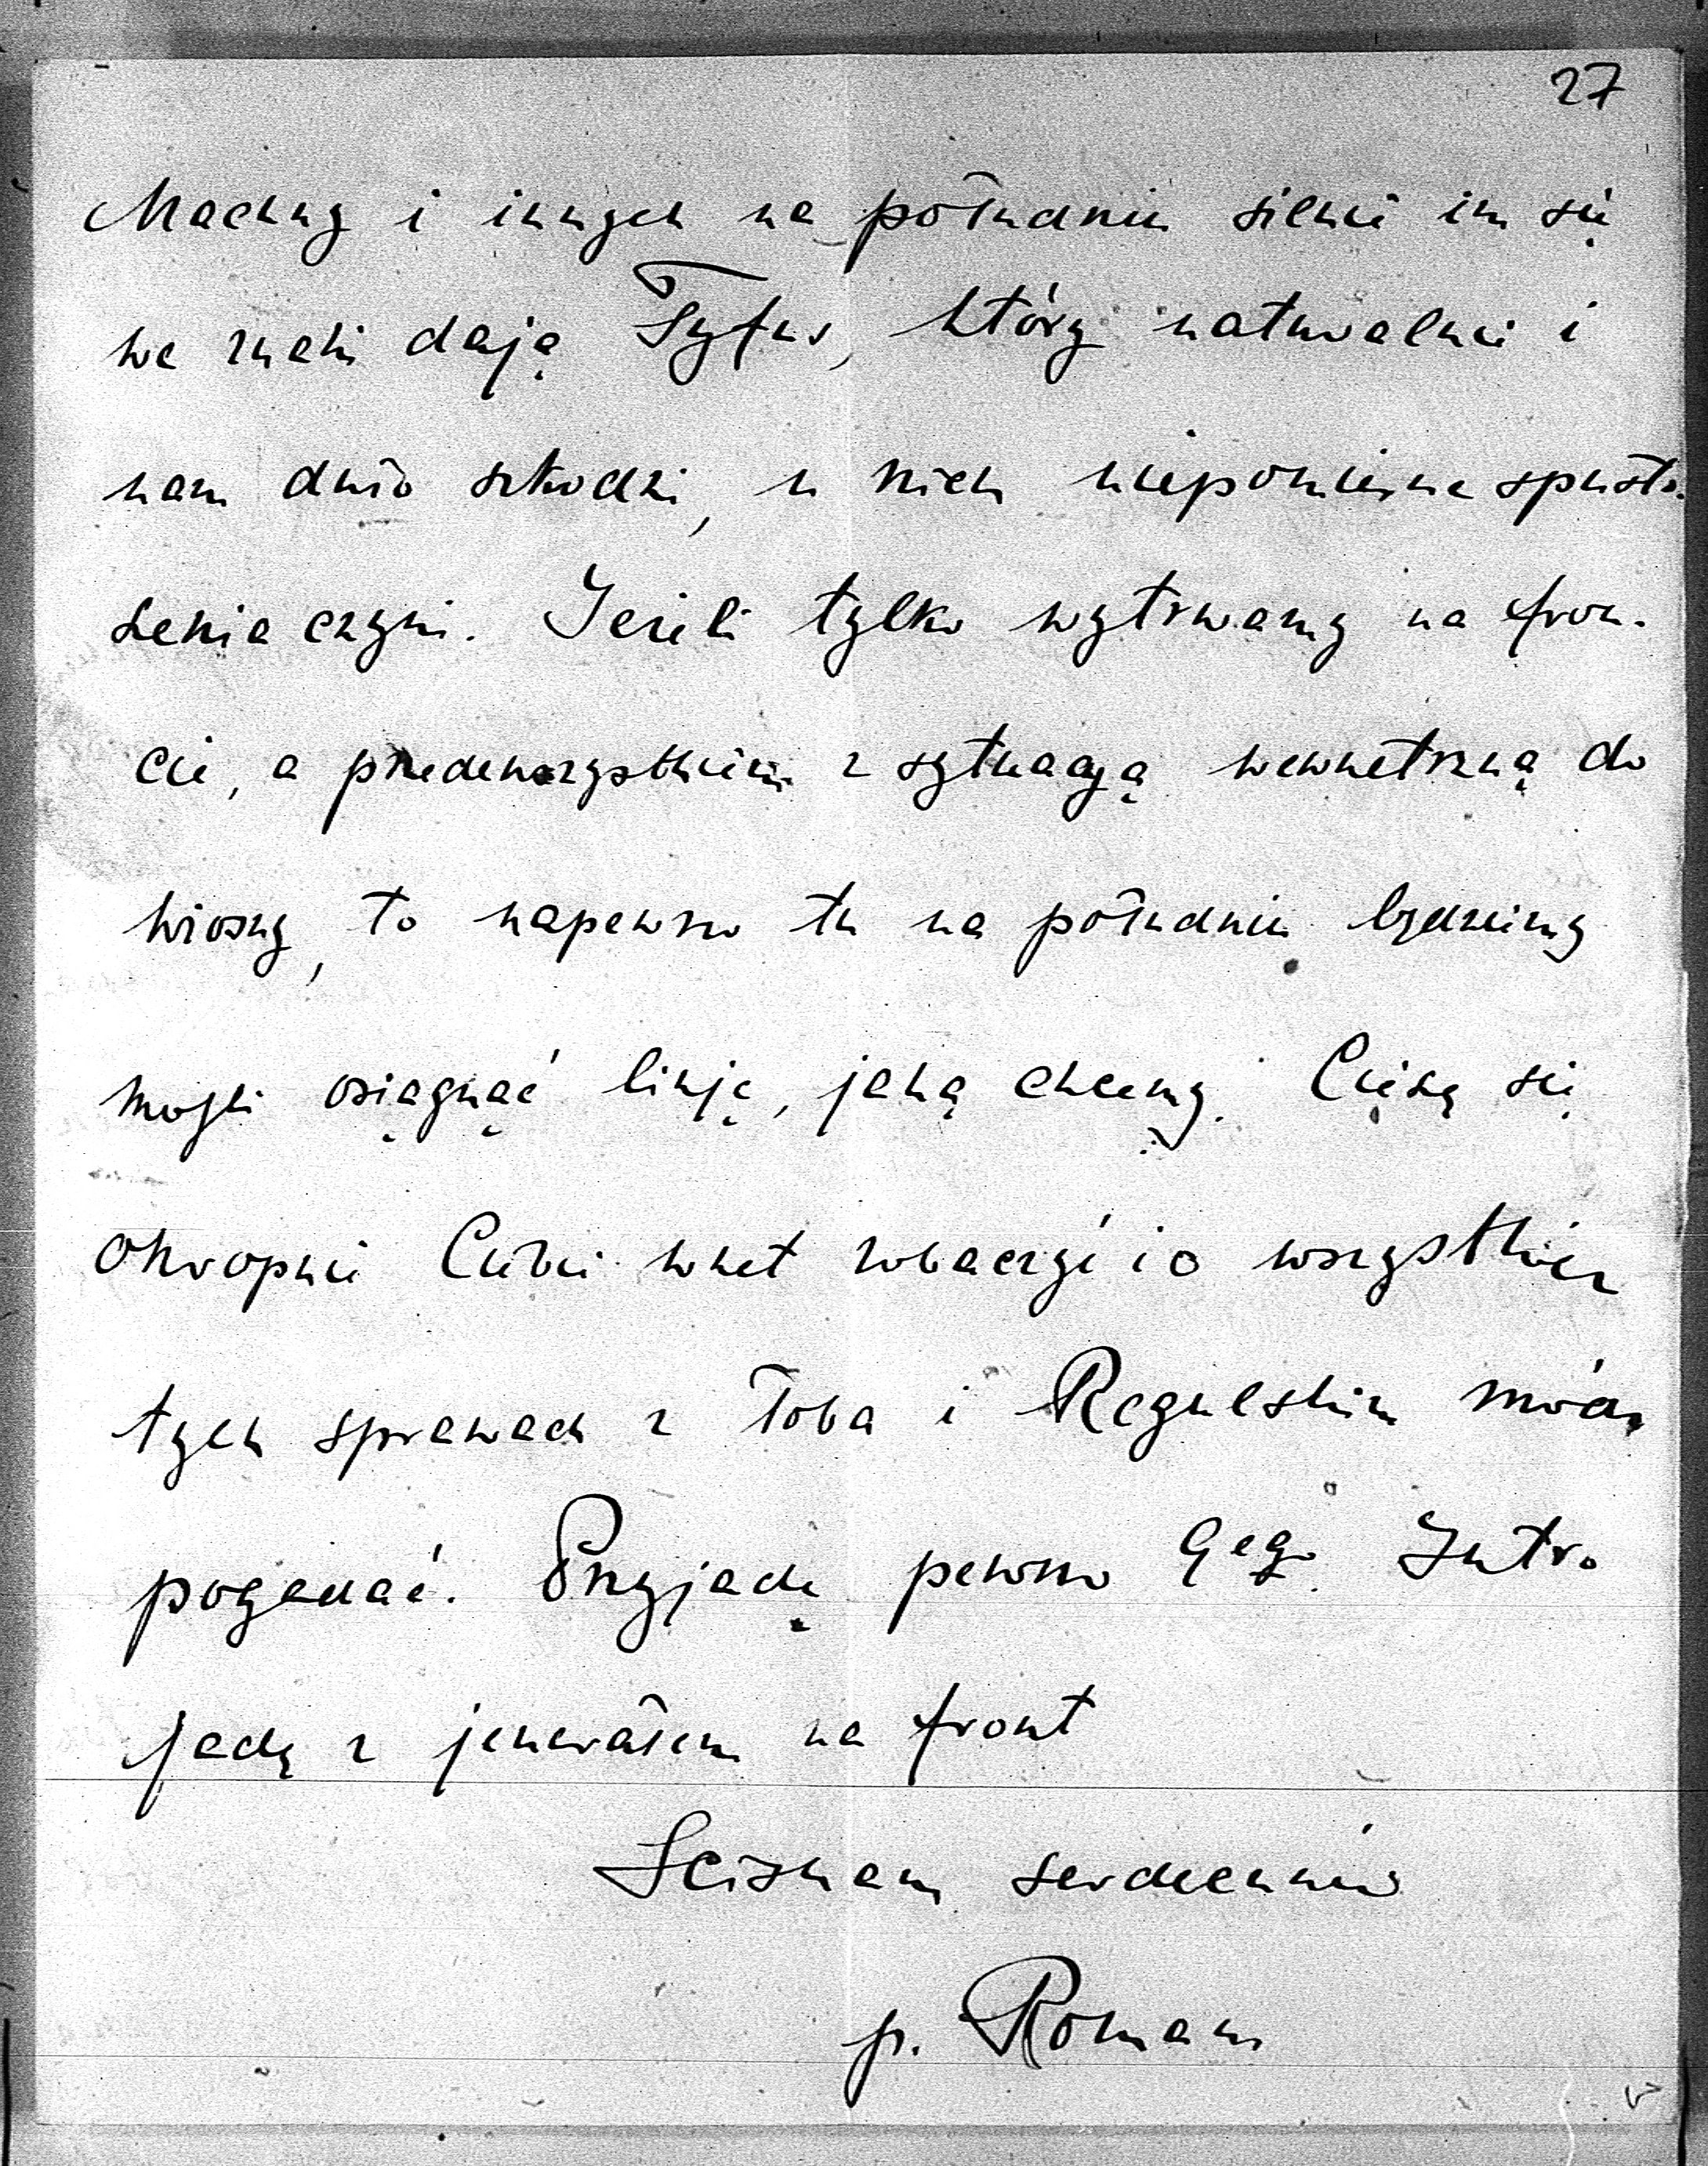 27
Machny i innych na południu silnie im się
we znaki dają. Tyfus, który naturalnie i
nam dużo szkodzi, u nich niepomierne spusto-
szenia czyni. Jeżeli tylko wytrwamy na fron-
cie, a przedewszystkiem z sytuacją wewnętrzną do
wiosny, to napewno tu na południu będziemy
mogli osiągnąć linję, jaką chcemy. Cieszę się
okropnie Ciebie wnet zobaczyć i o wszystkich
tych sprawach z Tobą i Regulskim móc
pogadać. Przyjadę pewno 9ego. Jutro
jadę z jenerałem na front
Ściskam serdecznie
p. Roman